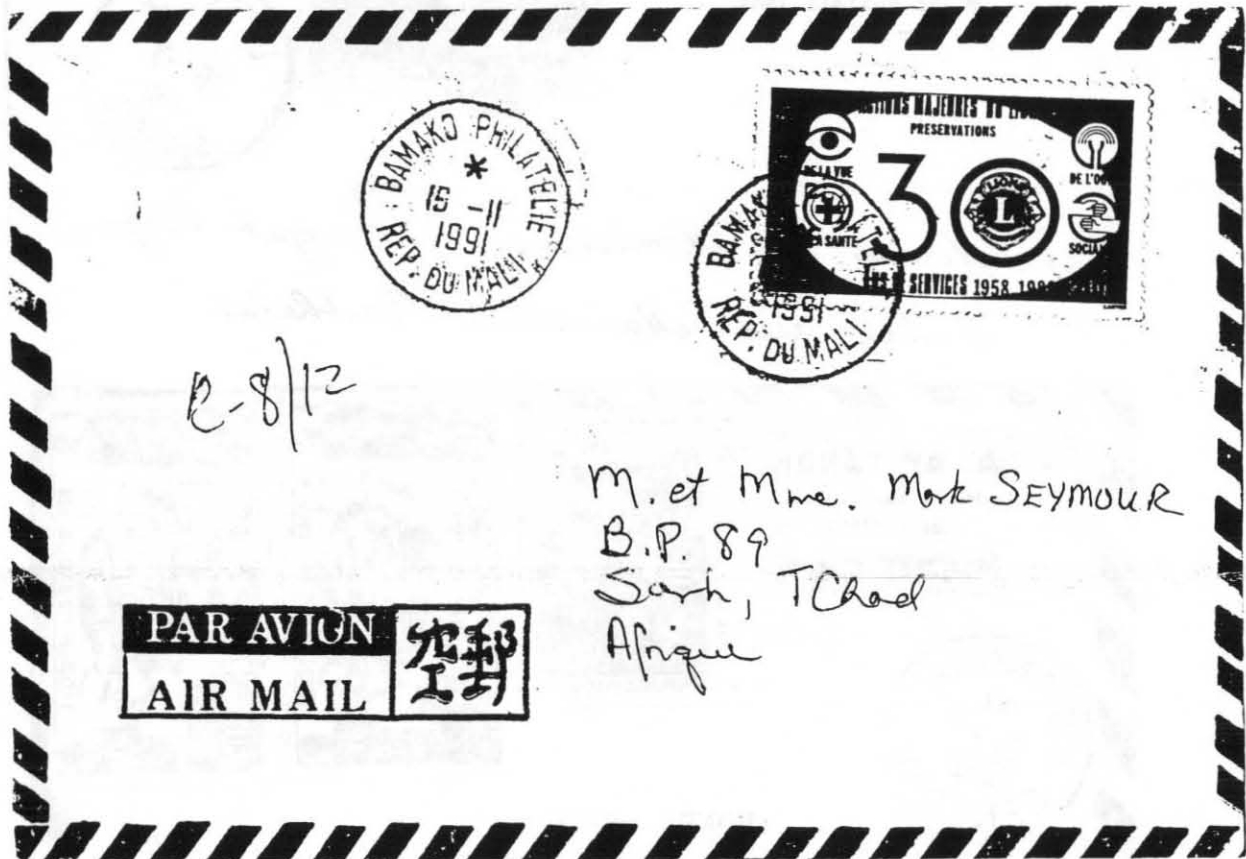 BAMAKO PHILATELIE
*
15 -11
1991
REP. DU MALI
MAJEURES DU
PRESERVATIONS
DE LA VUE
30
L
LIONS
SANTE
DE SERVICES 1958
BAMAKO
1991
REP. DU MALI
R-8/12
M. et Mme. Mark SEYMOUR
B.P. 89
Sarh, TChad
Afrique
PAR AVION
AIR MAIL
空郵